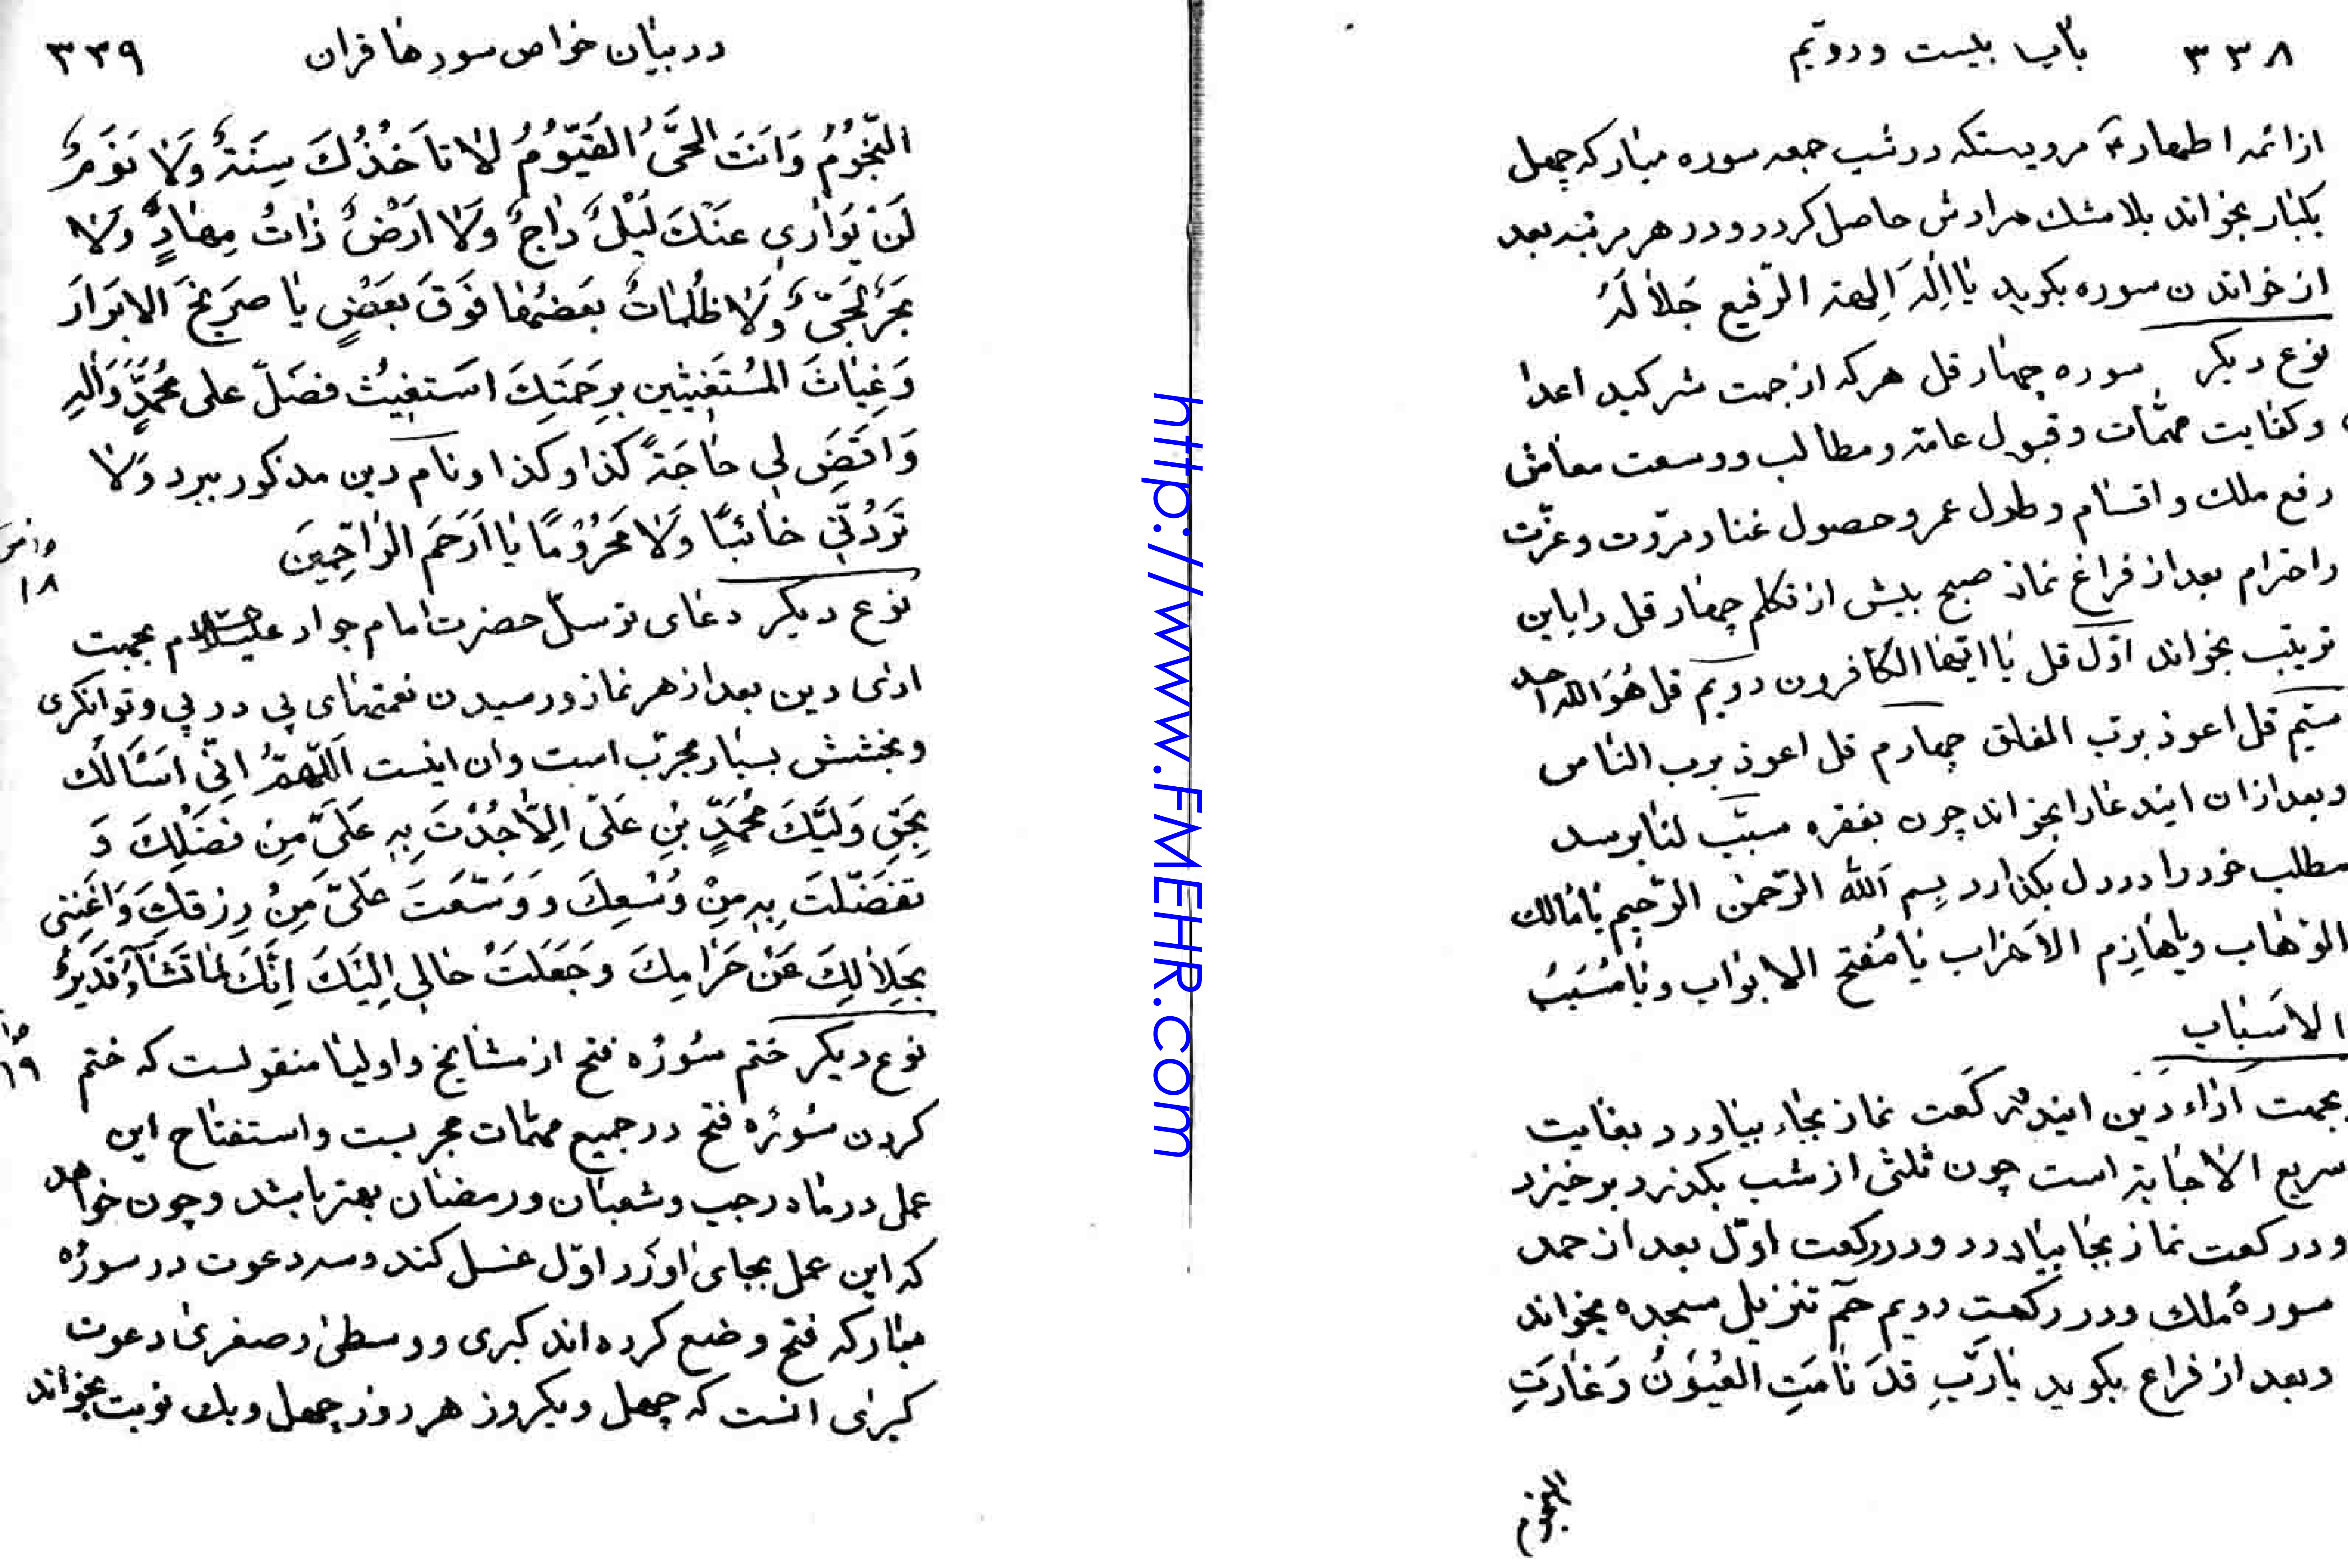 ۳۳۸ باب بیست و دویّم
از ائمه اطهار مرویستکه در شب جمعه سوره مبارکه چهل
یکبار بخواند بلا مشك مرادش حاصل کردد و در هر مرتبه بعد
از خواندن سوره بکوید یٰا اِلٰهَ اٰلِهة الرّفیع جَلاٰلُهُ
نوع دیکر سوره چهار قل هر که از جهت شر کید اعدا
و کفایت مهمّات و قبول عامّه و مطالب و وسعت معاش
رفع ملك و اقسام و طول عمر و حصول غنا و مروّت و عزّت
و احترام بعد از فراغ نماز صبح بیش از تکلم چهار قل را باین
ترتیب بخواند اوّل قل یٰا ایّها الکافرون دویم قل هُوَ الله احد
سیّم قل اعوذ بربّ الفلق چهارم قل اعوذ برب الناس
و بعد از ان ایندعا را بخواند چون بفقره مسبّب لنا برسد
مطلب خود را در دل بکذارد بِسم اَلله الرّحمٰن الرّحیم یٰا مٰالك
الرّقاب و یٰا هٰازِم الاَحزاب یٰا مُفتّح الابوٰاب و یٰا مُسَبّبُ
الاَسبٰاب
بجهت اَدٰاء دَین ایند رکعت نماز بجٰاء بیٰاورد بغایت
سریع الاٰجٰابة است چون ثلثی از شب بکذرد برخیزد
و در کعت نماز بجٰا بیٰاورد و در رکعت اوّل بعد از حمد
سورهٔ ملك و در رکعت دویم حٓم تنزیل سجده بخواند
و بعد از فراغ بکوید یٰا رَبِّ قَدْ نٰامَتِ العُیُوُنُ وَ غٰارَتِ
النجوم
در بیٰان خواص سورهٰا قران ۳۳۹
النّجُومُ وَ اَنتَ الحَیُّ القَیّوُمُ لاٰ تاَخُذُكَ سِنَةٌ وَلاٰ نَوْمٌ
لَنْ یُوٰاریٰ عَنْكَ لَیْلٌ دٰاجٌ وَلاٰ اَرْضٌ ذٰاتُ مِهٰادٍ وَلاٰ
بَحْرٌ لُجّیٌّ وَلاٰ ظُلُمٰاتٌ بَعضُهٰا فَوْقَ بَعْضٍ یٰا صَریخَ الابرَارَ
وَ غِیٰاثَ المُستَغیثین بِرَحمَتِكَ اَستَغیثُ فَصَلّ علی مُحمّدٍ وَ اٰلِهِ
وَ اقْضِ لی حٰاجَةً کذا و کذا و نام دین مذکور ببرد وَلاٰ
تَرُدُّنی خٰائِبًا وَلاٰ مَحرُوُمًا یٰا اَرْحَمَ الرّاحِمینَ
۱۸
نوع دیکر دعای توسلّ حضرت امام جواد علیه السلام بجهت
ادٰی دین بعد از هر نماز و رسیدن نعمتهٰای پی در پی و توانکری
و بخشش بسیٰار مجرّب است و ان اینست اَللّهمَّ اِنّی اَسئَالُكَ
بِحَقِّ وَلیّكَ مُحَمّدٍ بْنِ عَلیّ اِلاّٰ جُدْتَ بِهِ عَلَیَّ مِنْ فَضْلِكَ وَ
تَفَضّلْتَ بِهِ مِنْ وُسْعِكَ وَ وَسّعْتَ عَلَیَّ مِنْ رِزقِكَ وَ اَغْنِنی
بِحَلاٰلِكَ عَنْ حَرٰامِكَ وَ جَعَلْتَ حٰاجی اِلَیْكَ اِنّكَ لمٰا تَشٰاءُ قَدیرٌ
۱۹
نوع دیکر ختم سُورُه فتح از مشایخ و اولیٰا منقولست که ختم
کردن سُورُه فتح در جمیع مهمّات مجربست و استفتاح این
عمل در مٰاه رجب و شعبٰان و رمضٰان بهتر باشد و چون خواهد
که این عمل بجای اورَد اوّل غسل کند و سه دعوت در سورُه
مبٰارکه فتح وضع کرده اند کبری و وسطیٰ و صغریٰ دعوت
کبریٰ انست که چهل و یکروز هر روز چهل و یك نوبت بخواند
http://www.FMEHR.com